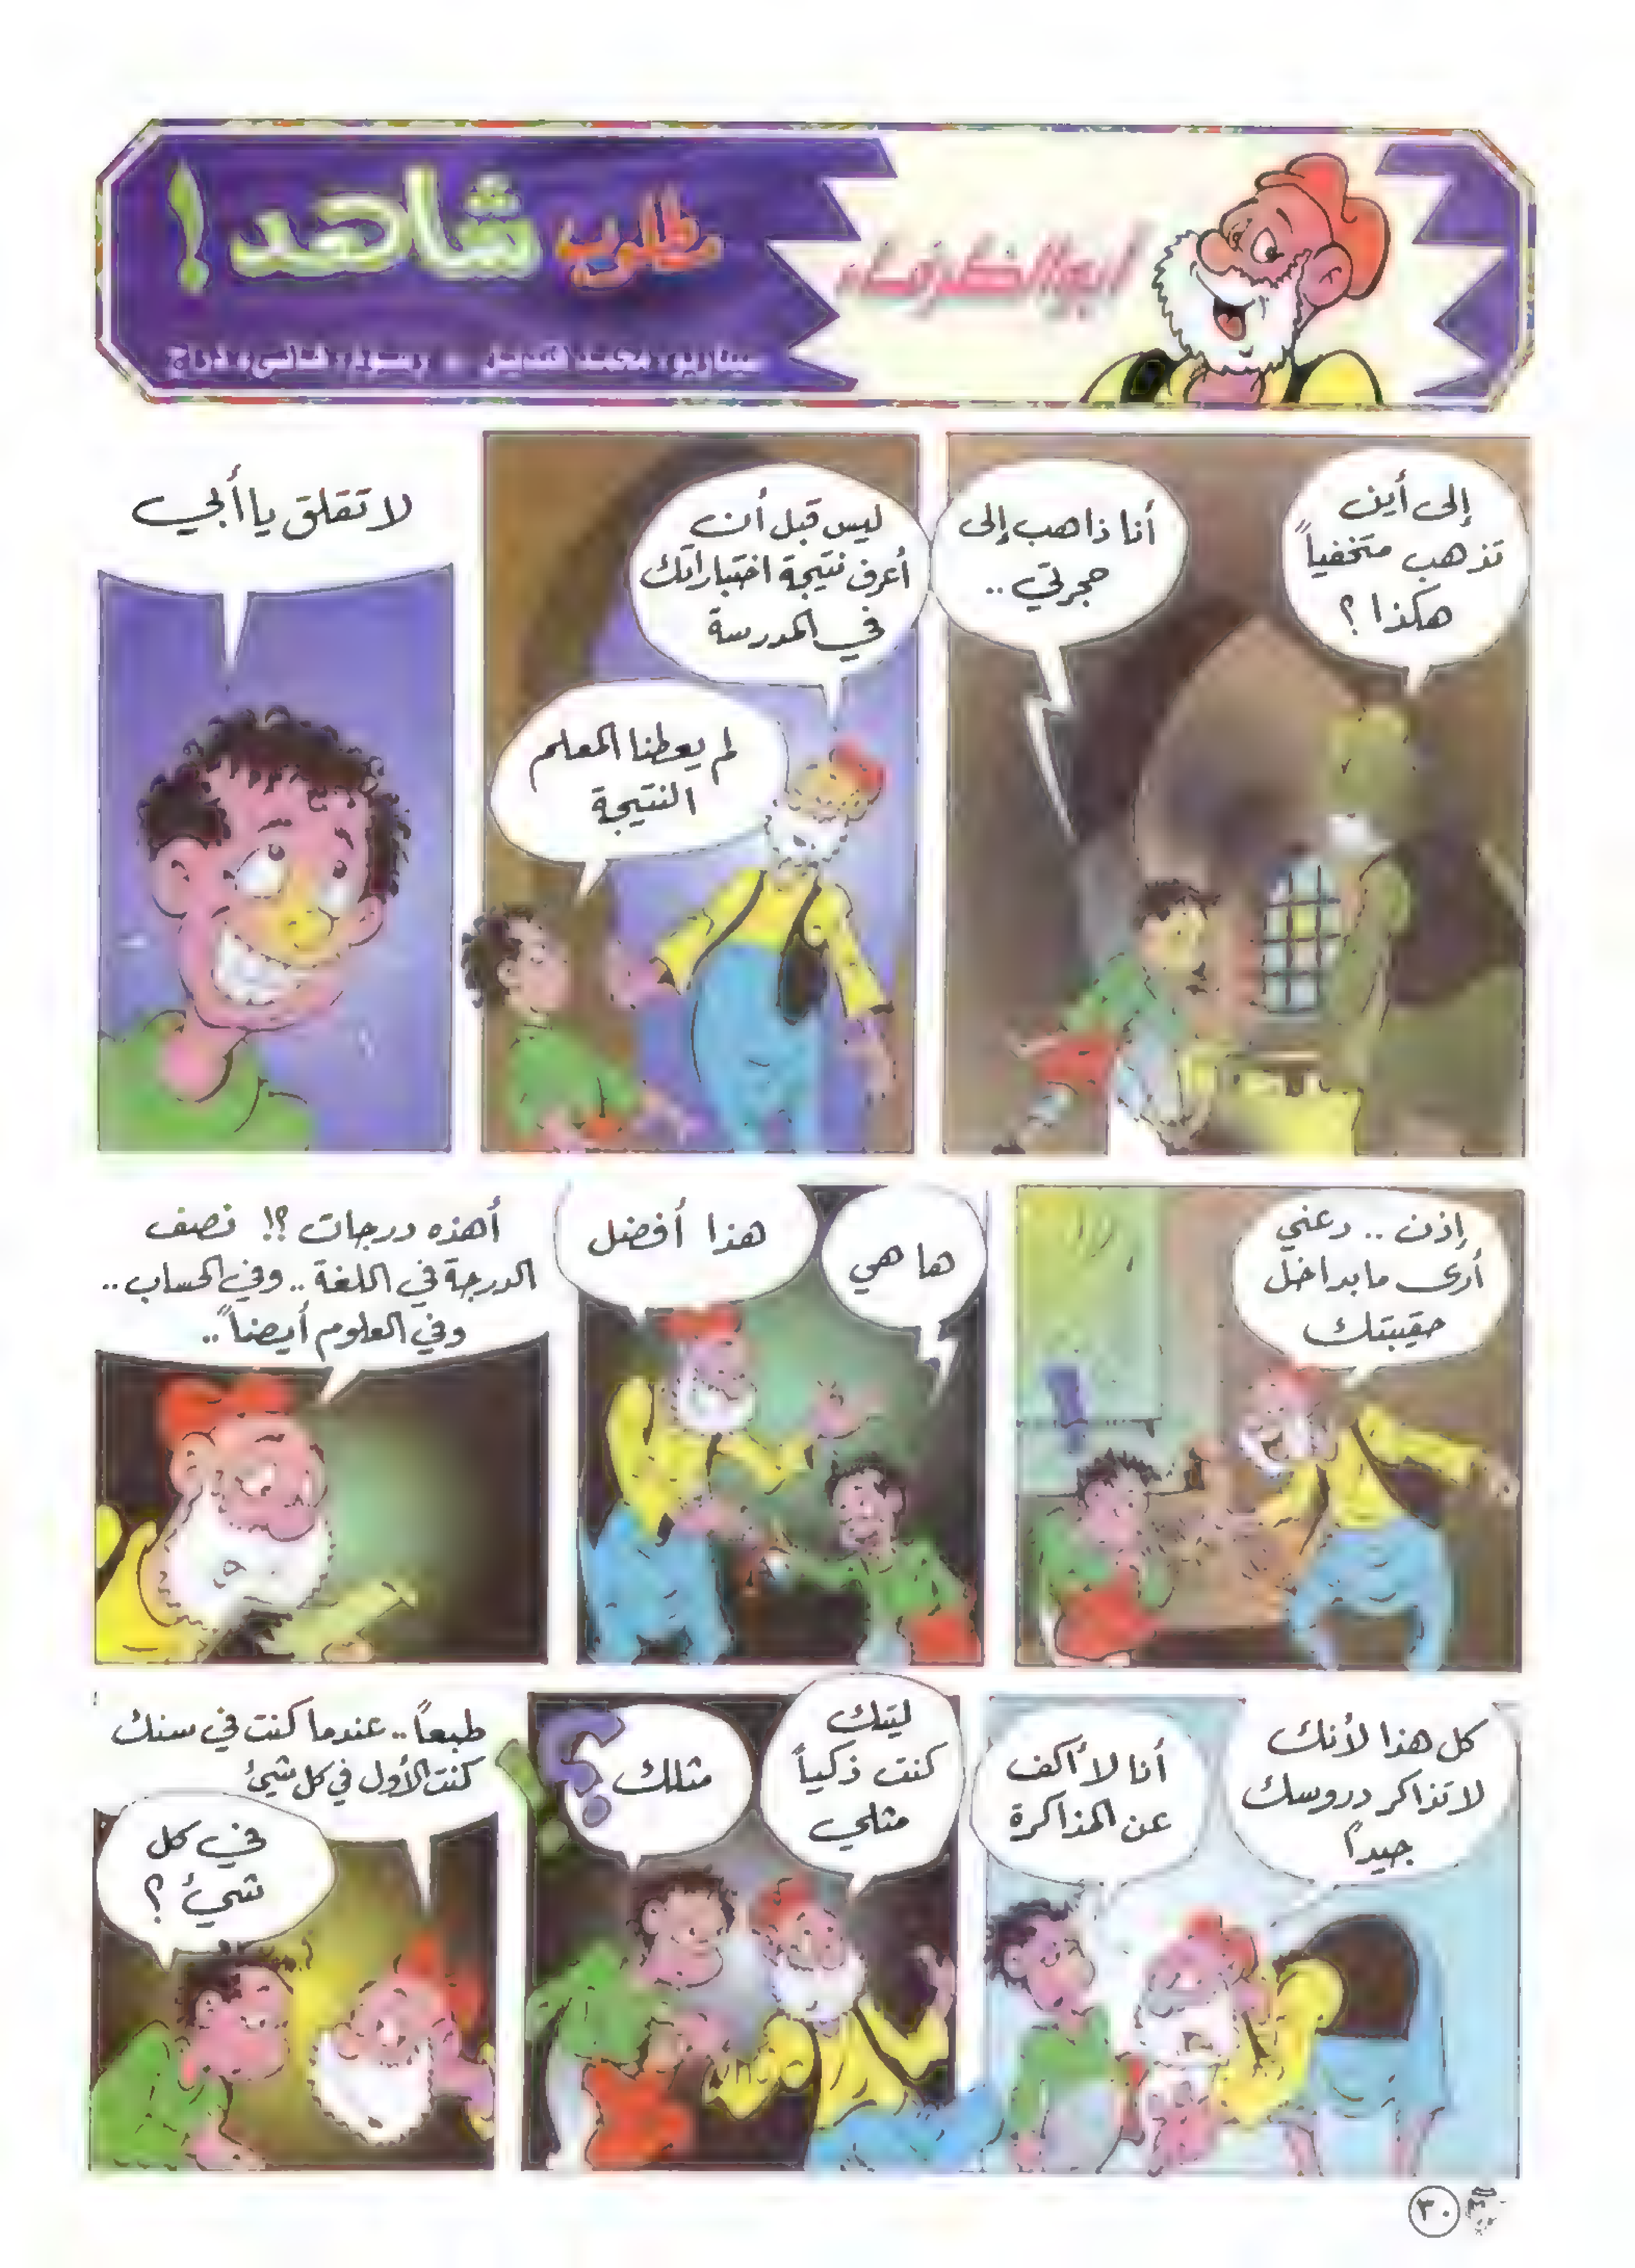 أبو الظرفاء
مطلوب شاهد!
سيناريو: محمد قنديل
إلى أين
تذهب متخفياً
هكذا؟
أنا ذاهب إلى
حجرتي..
ليس قبل أن
أعرف نتيجة اختباراتك
في المدرسة
لم يعطنا المعلم
النتيجة
لا تقلق يا أبي
إذن .. دعني
أرى ما بداخل
حقيبتك
ها هي
هذا أفضل
أهذه درجات ؟! نصف
الدرجة في اللغة .. وفي الحساب ..
وفي العلوم أيضاً ..
كل هذا لأنك
لا تذاكر دروسك
جيداً
أنا لا أكف
عن المذاكرة
ليتك
كنت ذكياً
مثلي
مثلك
؟!
طبعاً .. عندما كنت في سنك
كنت الأول في كل شئ
في كل
شئ ؟
٣٠